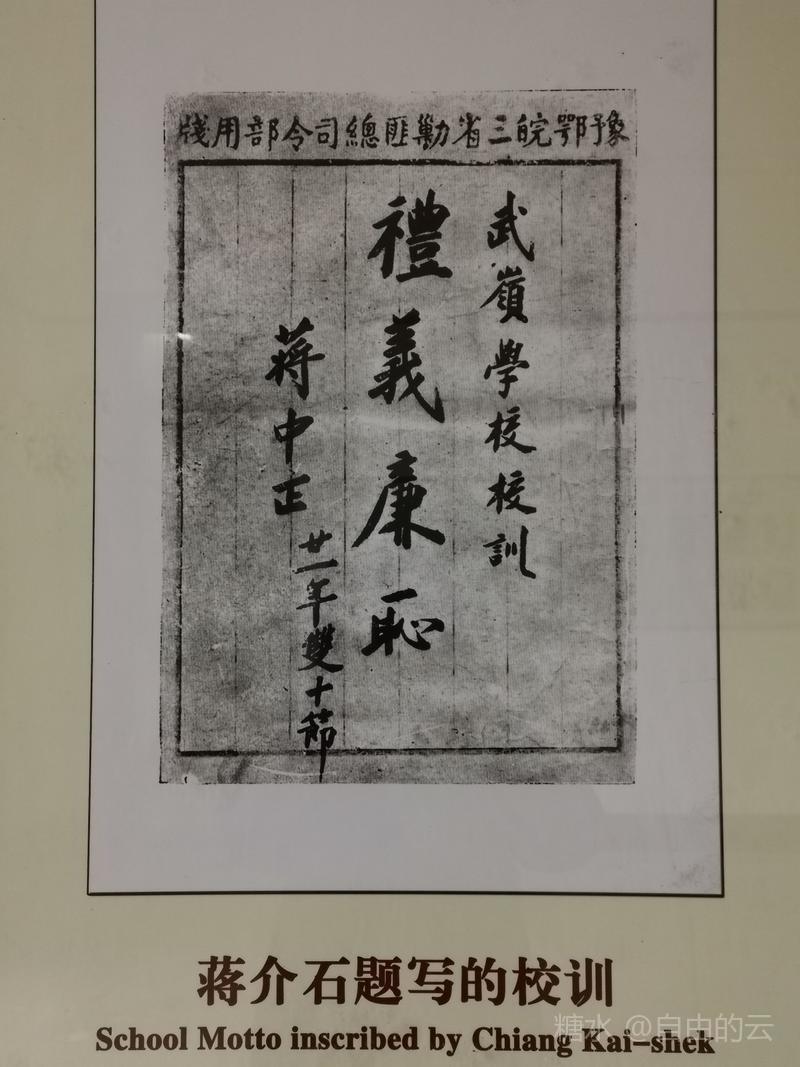 豫鄂皖三省勦匪總司令部用牋
武嶺學校校訓
禮義廉恥
蔣中正
廿一年雙十節
蒋介石题写的校训
School Motto inscribed by Chiang Kai-shek
糖水 @自由的云